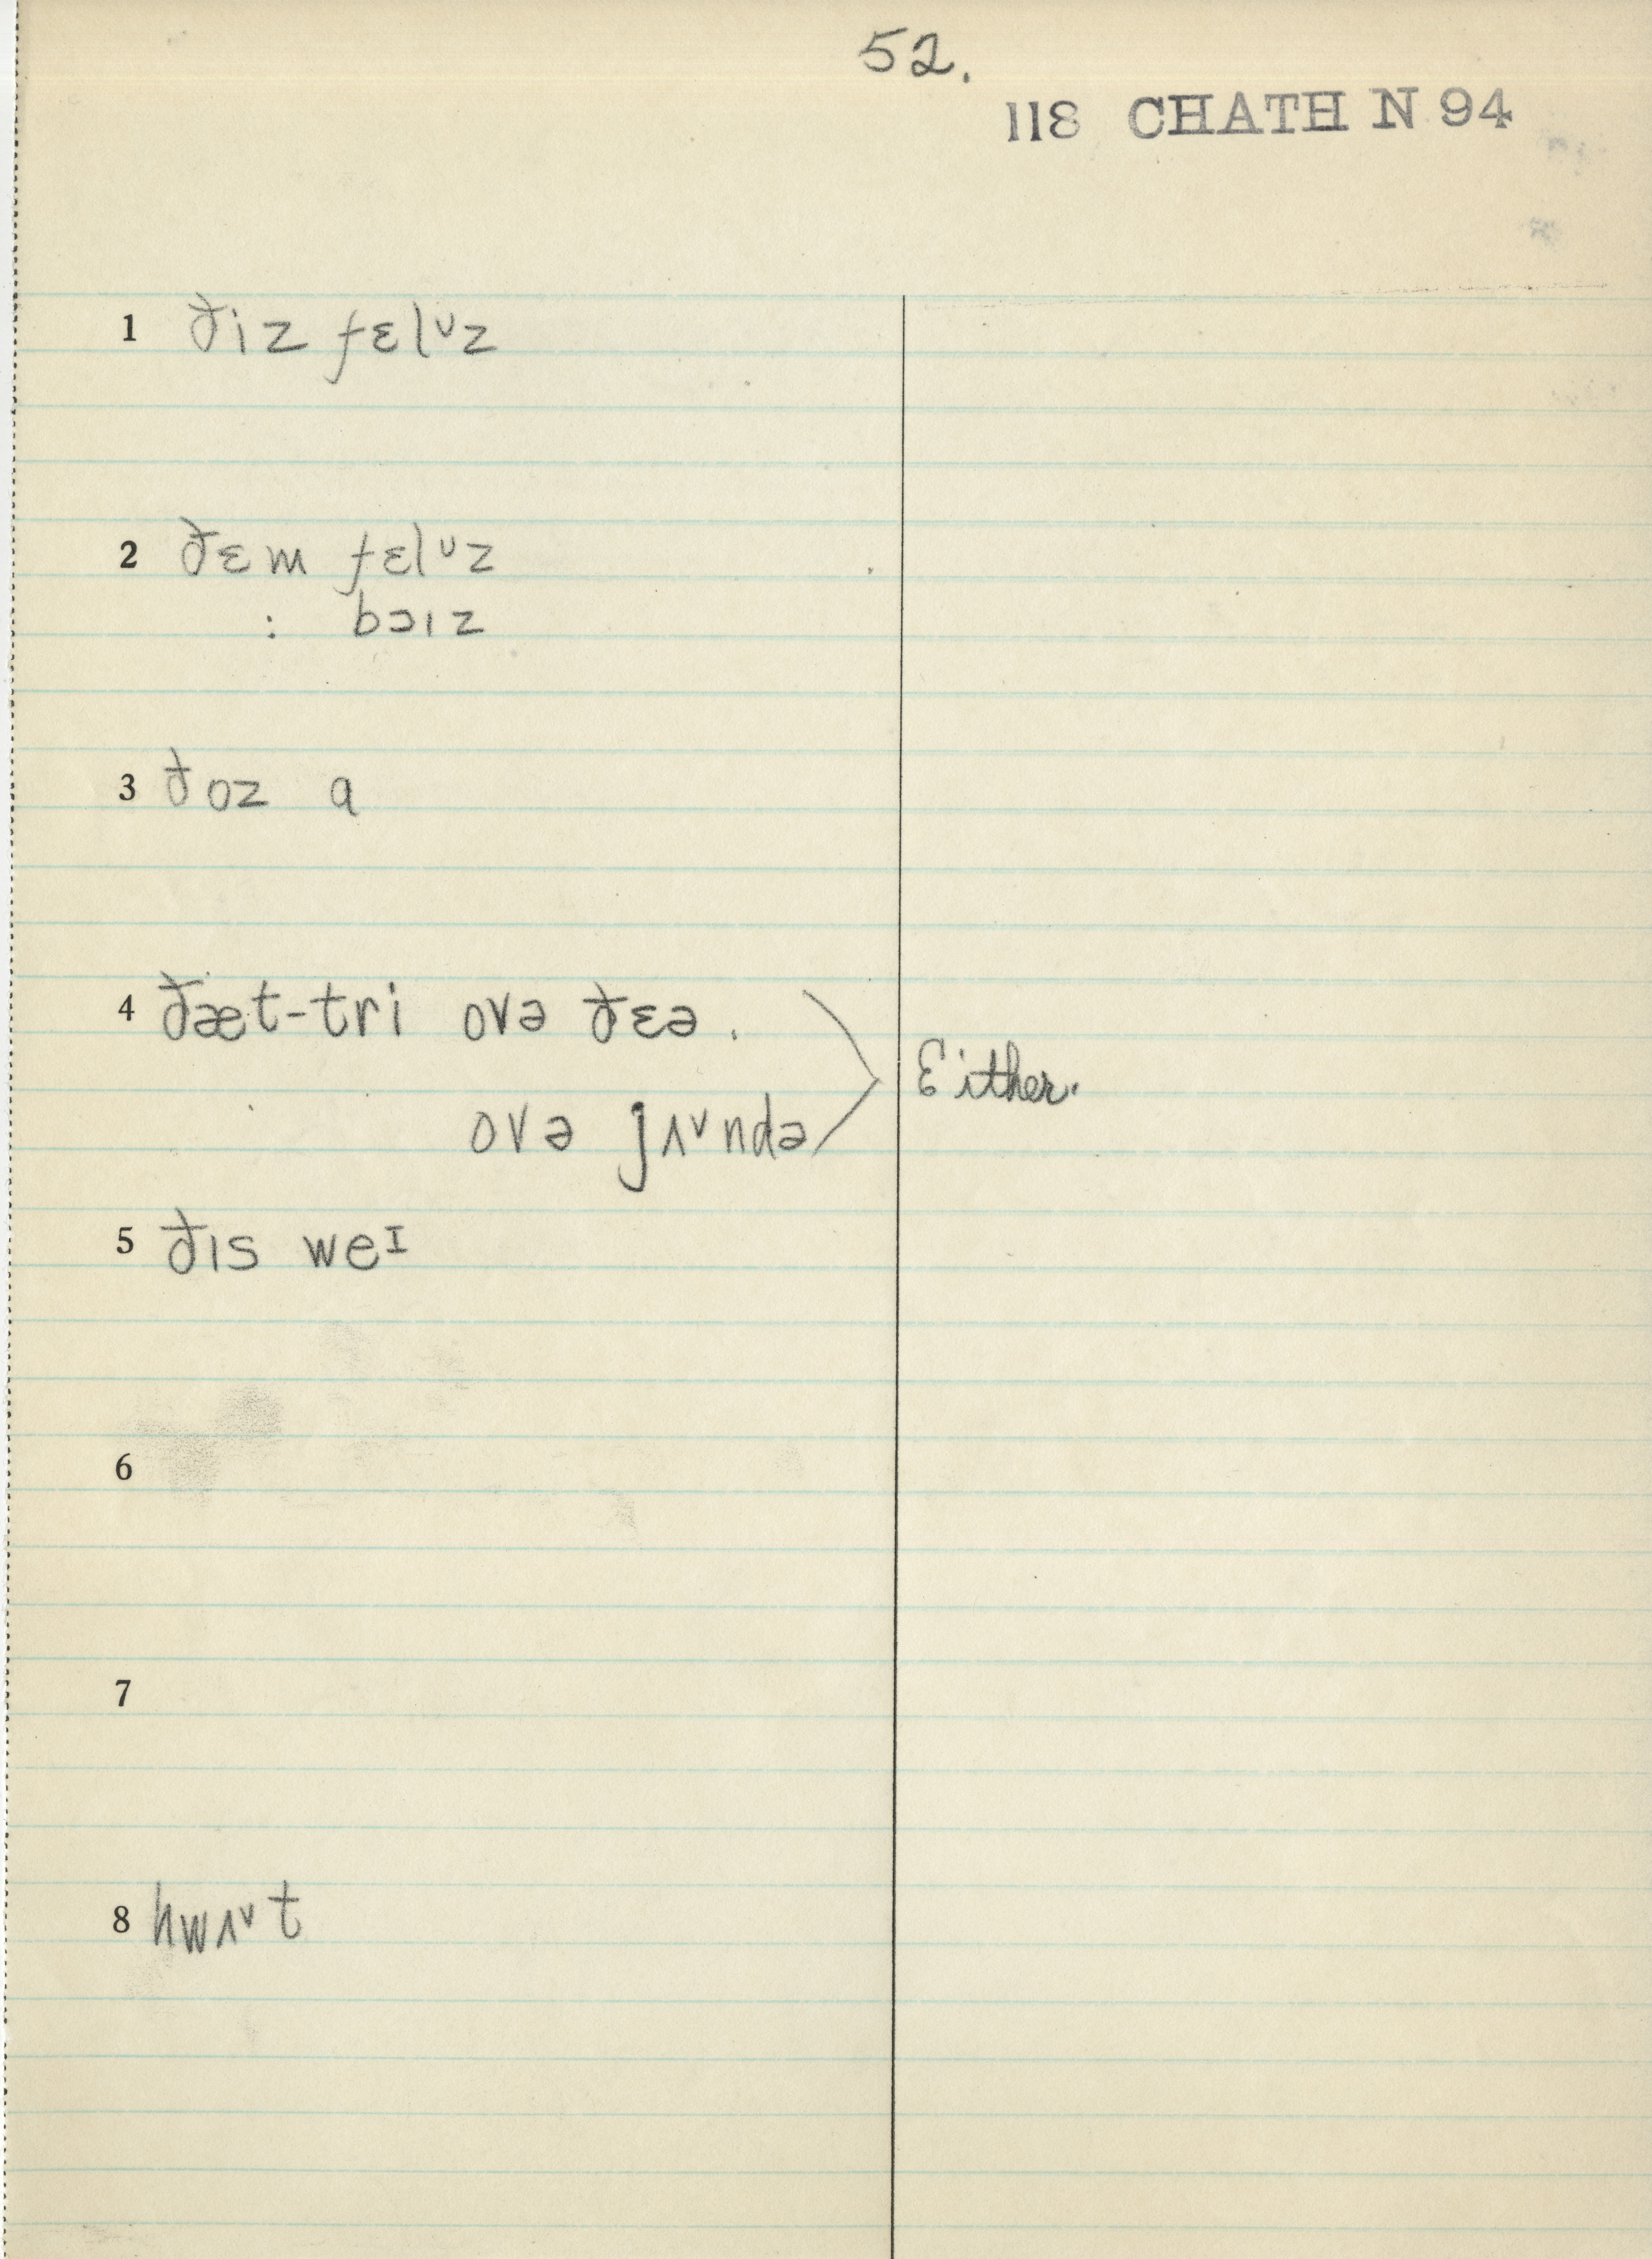 52.
118 CHATH N 94
1 ðiz fɛlᵘz
2 ðɛm fɛlᵘz
: bɔız
3 ðoz ɑ
4 ðæt-tri ovə ðɛə.
Either.
ovə jʌ˅ndə
5 ðıs weᴵ
6
7
8 hwʌ˅t